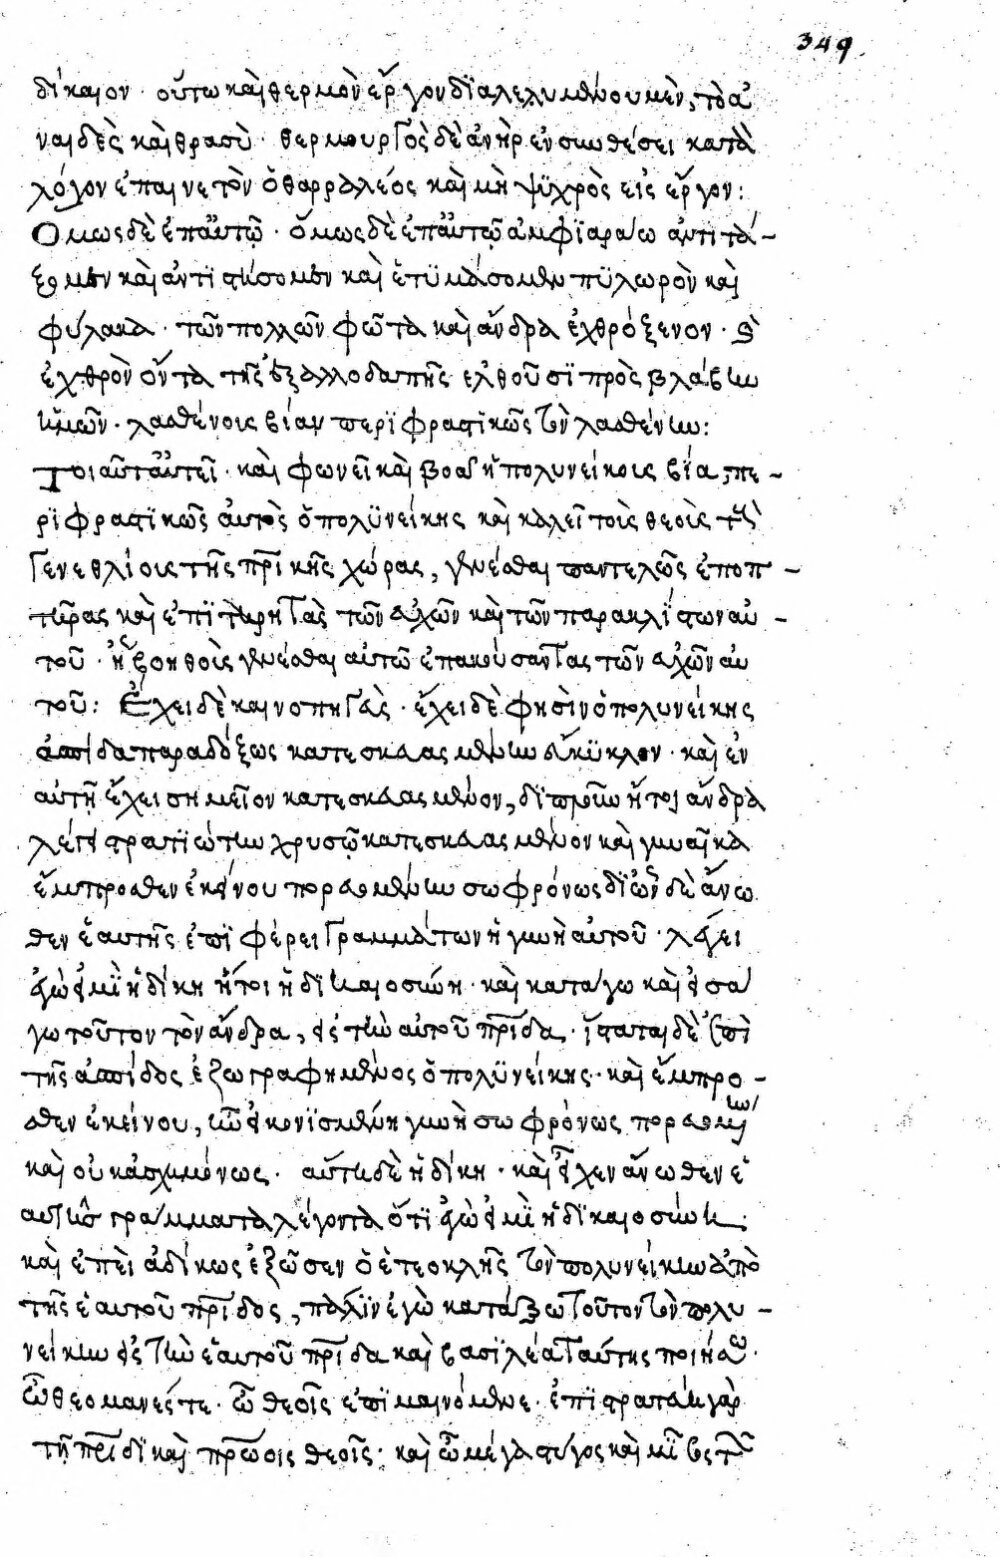 349
δίκαιον · οὕτω καὶ θερμὸν ἔργον διαλελυμένου μὲν, τὸ ἀ
ναιδὲς καὶ θρασὺ · θερμουργὸς δὲ ἀνὴρ ἐν συνθέσει κατὰ
λόγον ἐπαινετὸν ὁ θαρραλέος καὶ μὴ ψϋχρὸς εἰς ἔργον :
Ὅμως δὲ ἐπ' αὐτῷ · ὅμως δὲ ἐπ' αὐτῷ ἀμφϊαράω ἀντιτά –
ξομεν καὶ ἀντιστήσομεν καὶ ἑτοιμάσομεν πϋλωρὸν καὶ
φύλακα · τῶν πολλῶν φῶτα καὶ ἄνδρα ἐχθρόξενον ·
ἐχθρὸν ὄντα τῆς ἐξ ἀλλοδαπῆς ἐλθοῦσϊ πρὸς βλάβην
ἡμῶν · λασθένοις βίαν περϊφραστϊκῶς τὸν λασθένην :
Τοιαῦτ' ἀϋτεῖ · καὶ φωνεῖ καὶ βοᾶ ἡ πολυνείκοις βία, πε –
ρϊφραστϊκῶς αὐτὸς ὁ πολϋνείκης καὶ καλεῖ τοὺς θεοὺς τοὺς
γενεθλίους τῆς πρικῆς χώρας, γενέσθαι παντελῶς ἐποπ –
τῆρας καὶ ἐπϊτηρητὰς τῶν εὐχῶν καὶ τῶν παρακλήσεων αὐ –
τοῦ · ἢ βοηθοὺς γενέσθαι αὐτῶ ἐπακούσαντας τῶν εὐχῶν αὐ
τοῦ : Ἔχει δὲ καινοπηγὲς · ἔχει δὲ φησὶν ὁ πολυνείκης
ἀσπίδα παραδόξως κατεσκευασμένην εὔκϋκλον · καὶ ἐν
αὐτῇ ἔχει σημεῖον κατεσκευασμένον, δϊπλοῦν ἤτοι ἄνδρα
λέγει στρατϊώτην χρυσῷ κατεσκευασμένον καὶ γυναῖκα
ἔμπροσθεν ἐκείνου πορευομένην σωφρόνως δὲ ἄνω
θεν ἑαυτῆς ἐπϊφέρει γραμμάτων ἡ γυνὴ αὐτοῦ · λέγει
ἐγὼ εἰμὶ ἡ δίκη ἤτοι ἡ δϊκαιοσύνη · καὶ κατάγω καὶ εἰσά
γω τοῦτον τὸν ἄνδρα, εἰς τὴν αὐτοῦ πρίδα · ἵσταται δὲ ἐπὶ
τῆς ἀσπίδος ἐζωγραφημένος ὁ πολϋνείκης · καὶ ἔμπρο –
σθεν ἐκείνου, ἦν εἰκονϊσμένη γυνὴ σωφρόνως πορευομένη
καὶ οὐκ ἀσχημόνως · αὕτη δὲ ἡ δίκη · καὶ εἶχεν ἄνωθεν ἑ
αυτῆς γράμματα λέγοντα ὅτϊ ἐγὼ εἰμὶ ἡ δϊκαιοσύνη :
καὶ ἐπεὶ ἀδίκως ἐξῶσεν ὁ ἐτεοκλῆς τὸν πολυνείκην ἀπὸ
τῆς ἑαυτοῦ πρίδος, πάλϊν ἐγὼ κατάξω τοῦτον τὸν πολυ –
νείκην εἰς τὴν ἑαυτοῦ πρίδα καὶ βασϊλέα ταύτης ποιήσω ·
ὦ θεομανές τε · ὦ θεοῖς ἐπϊμαινόμενε · ἐπϊστρατεύει γὰρ
τῇ πρίδϊ καὶ πρώοις θεοῖς · καὶ ὦ μέγα στύγος καὶ